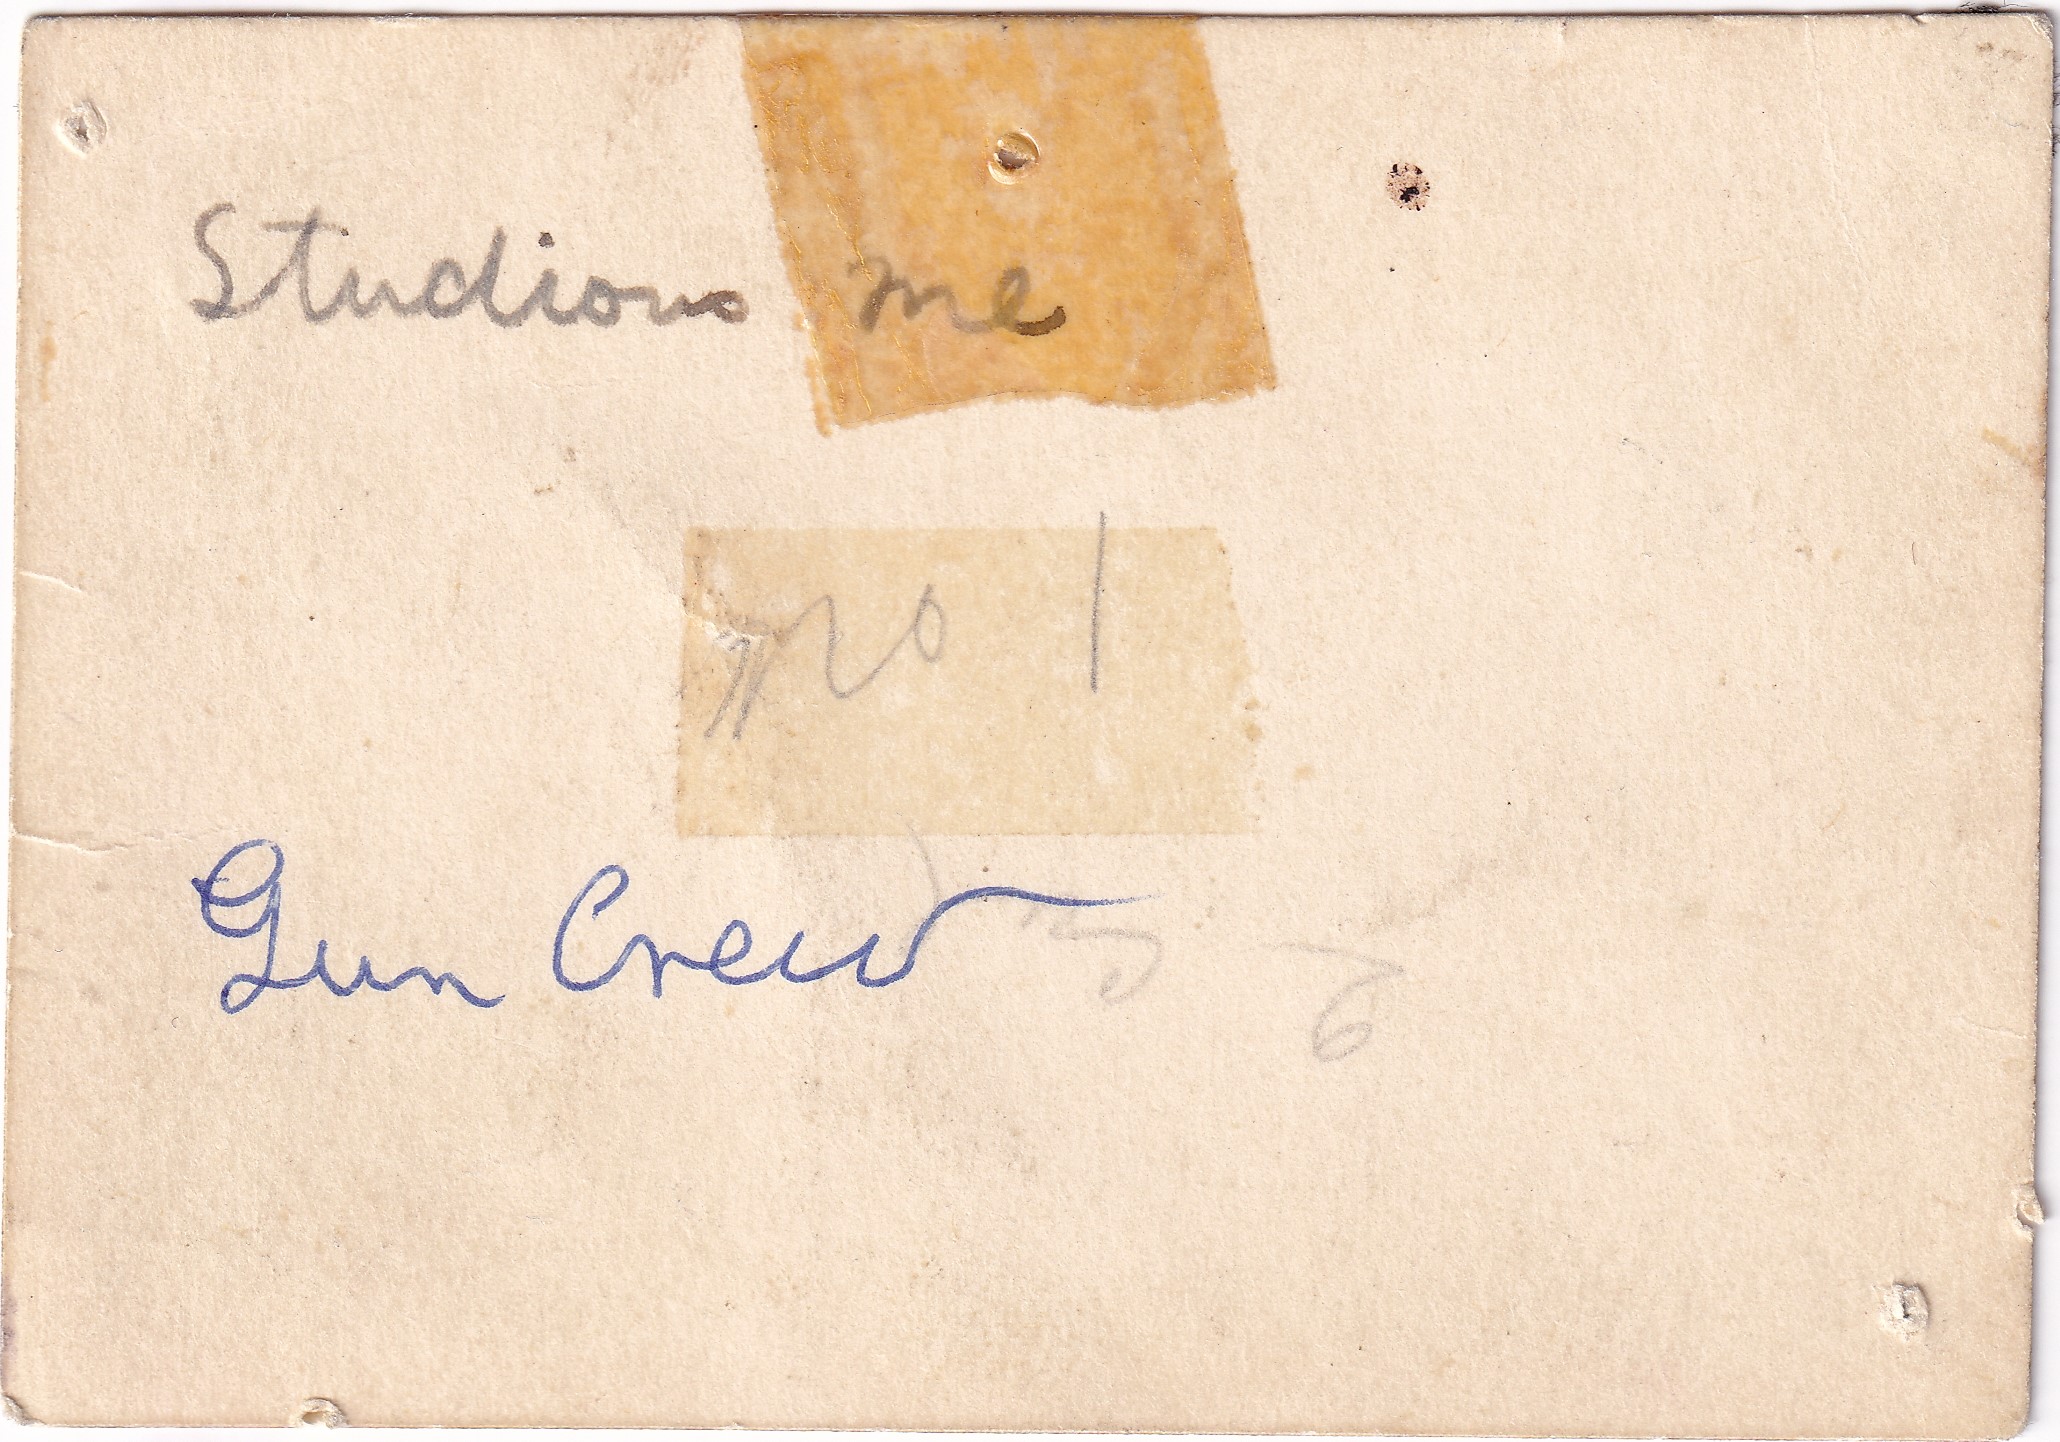 Studious me
No 1
Gun Crew